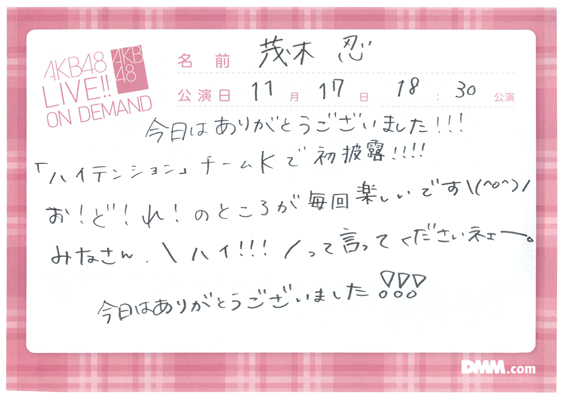 AKB48
LIVE!!
ON DEMAND
AKB
48
名前 茂木 忍
公演日 11月17日 18:30公演
今日はありがとうございました!!!
「ハイテンション」チームKで初披露!!!!
お!ど!れ!のところが毎回楽しいです\(^o^)/
みなさん、\ハイ!!!/って言ってくださいネェー。
今日はありがとうございました!!!
DMM.com